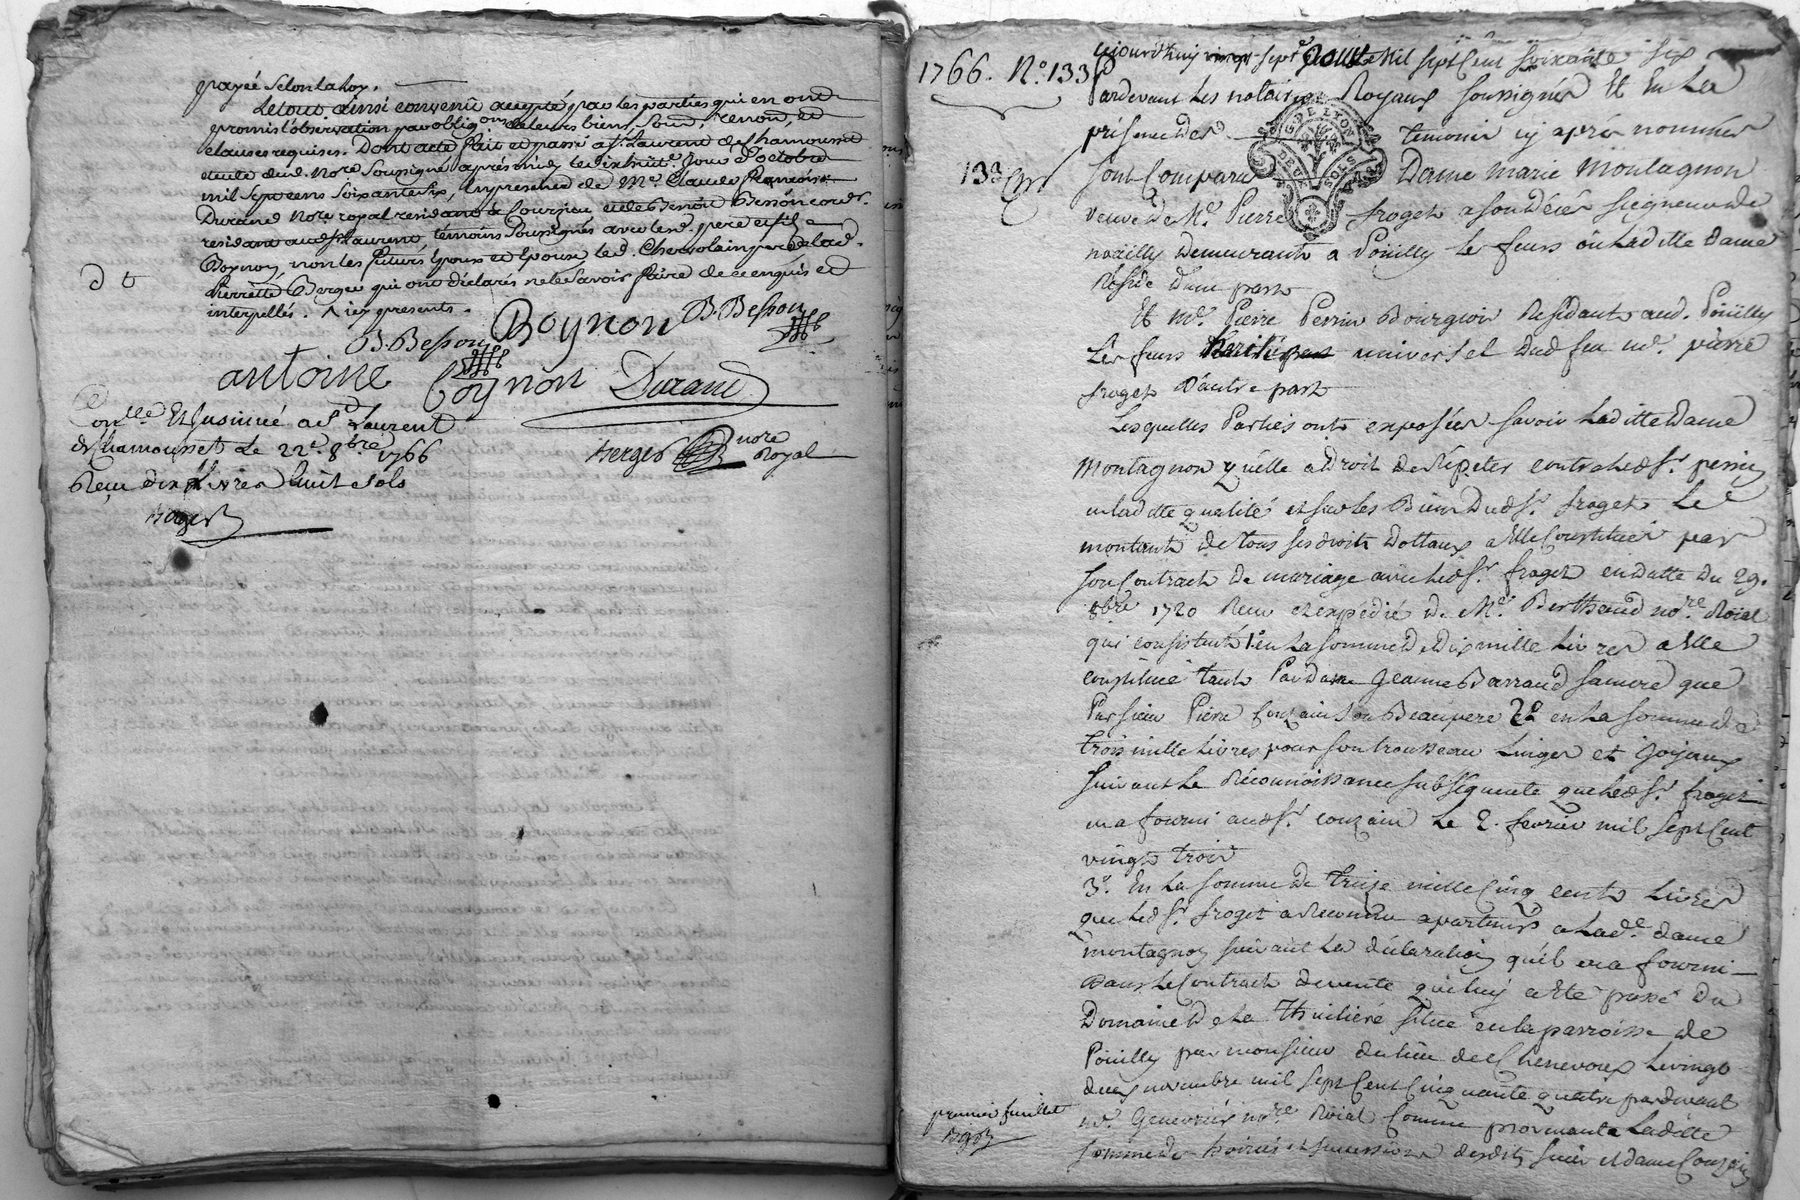 payée selon la loy.
Le tout ainsi convenû accepté par les parties qui en ont
promis l'observation par oblig.ons de leurs biens, soum, renon, et
clauses requises. Dont acte fait et passé a St. Laurent de Chamousset
etude dud. Nore. soussigné après midy le dixhuit.e Jour d'octobre
mil sept cens soixante six, en presence de Me. Claude François
Durand Nore royal residant à Courzieu et de Benoit Besson cord.r
residant aud. St Laurent, témoins soussignés avec led. pere et fils
Coynon, non les futurs Epoux et Epouse led. Chevolain pere et lad.
Pierrette Berger qui ont déclarés ne le savoir faire de ce enquis et
interpellés. presents.
D t
Coynon B. Besson
B. Besson
antoine Coynon Durand
Con.lle Et Insinué a St Laurent
de Chamousset Le 22e. 8bre 1766
Reçu dix Livres huit sols
Berger nore Royal
Berger
1766. No. 133
aujourd'huy vingt sept.e aoust Mil sept Cent soixante six
Pardevant Les notaires Royaux soussignés Et En La
présence des temoins cy après nommés
133
G. DE LYON
DEUX SOLS
sont Comparu Dame Marie Montagnon
veuve de Me. Pierre froget a son décès seigneur de
noailly Demeurante a Pouilly les feurs où Laditte dame
Réside d'une part
Et Me. Pierre Perrin Bourgeois Residant aud. Poüilly
Les feurs heritier universel Dud feu me. pierre
froget d'autre part
Lesquelles Parties ont exposées savoir Laditte Dame
Montagnon qu'elle a droit de Répeter contre Led Sr. perrin
en laditte qualité et sur les Biens Dud Sr. froget Le
montant de tous ses droits Dottaux a Elle Constitués par
son Contract de mariage avec led Sr. froget en datte du 29.
8bre 1720 Reçu et expédié De Me. Berthaud nore. Roial
qui consistent 1o en La somme De dix mille Livres a Elle
constituée tant Par Dame Jeanne Barraud sa mere que
Par sieur Piere Couzain son Beaupere 2o en La somme de
trois mille Livres pour son trousseau Linges et Joyaux
suivant La Réconnoissance subséquente que led Sr. froget
en a fourni aud Sr. couzain Le 2. fevrier mil sept Cent
vingt trois
3o. En La somme de treize mille Cinq cents Livres
que Led Sr. froget a reconnu apartenir a Lade. dame
montagnon suivant La déclaration qu'il en a fourni
Dans Le Contract de vente que luy a Ete passé Du
Domaine De La Thuiliere situé en la parroisse de
Poüilly par monsieur dulieu de Chenevoux Le vingt
deux novembre mil sept Cent Cinquante quatre pardevant
me. Genevrier nore Roial Comme provenante Laditte
somme des hoiries et successions desdts sieur et dame Couzain
premier feuillet